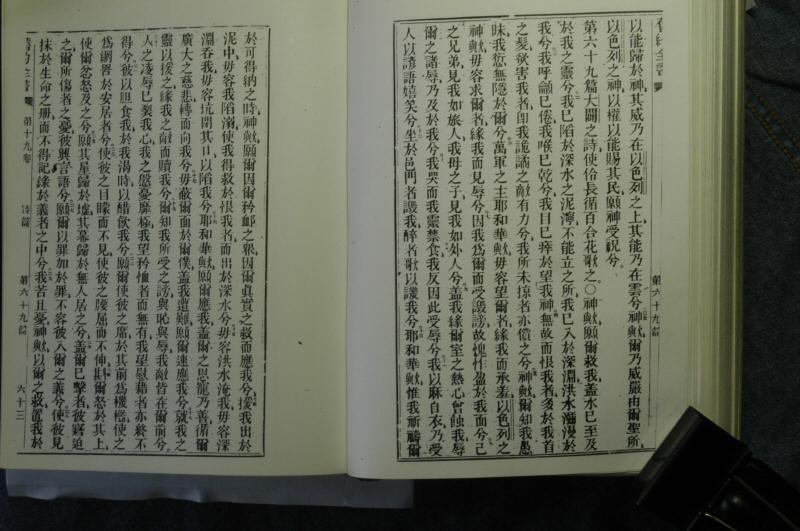 舊約全書
第六十九篇
以能歸於神其威乃在以色列之上其能乃在雲兮神歟爾乃威嚴由爾聖所
以色列之神以權以能賜其民願神受祝兮
第六十九篇大闢之詩使伶長循百合花歌之〇神歟願爾救我盖水已至及
於我之靈兮我已陷於深水之泥濘不能立之所我已入於深淵洪水瀰漫於
我兮我呼籲已倦我喉已乾兮我目已瘁於望我神無故而恨我者多於我首
之髮欲害我者卽我詭譎之敵有力兮我所未掠者亦償之兮神歟爾知我愚
昧我愆無隱於爾兮萬軍之主耶和華歟毋容望爾者緣我而承羞以色列之
神歟毋容求爾者緣我而見辱兮因我爲爾而受譭謗故愧怍盈於我面兮己
之兄弟見我如旅人我母之子見我如外人兮盖我緣爾室之熱心曾蝕我辱
爾之諸辱乃及於我兮我哭而我靈禁食我反因此受辱兮我以麻自衣乃受
人以諺語嬉笑兮坐於邑門者譭我醉者歌以譏我兮耶和華歟惟我祈禱爾
於可得納之時神歟願爾因爾矜卹之衆因爾眞實之救而應我兮援我出於
泥中毋容我陷溺使我得救於恨我者而出於深水兮毋容洪水淹我毋容深
淵吞我毋容坑閉其口以陷我兮耶和華歟願爾應我盖爾之恩寵乃善循爾
廣大之慈悲轉而向我兮毋蔽爾面於爾僕盖我遭難願爾速應我兮就我之
靈以援之緣我之敵而贖我兮爾知我所受之謗與恥與辱我敵皆在爾前兮
人之凌辱已裂我心我之慇憂靡極我望矜恤者而無有我望慰藉者亦終不
得兮彼以胆食我於我渴時以醋飲我兮願爾使彼之席於其前爲機檻使之
爲網罟於安居者兮使彼之目矇而不見使彼之腰屈而不伸斟爾怒於其上
使爾忿怒及之兮願其屋歸於墟其幕歸於無人居之兮盖爾已擊者彼窘迫
之爾所傷者之憂彼興言語兮願爾以罪加於罪不容彼入爾之義兮使彼見
抹於生命之册而不得記錄於義者之中兮我苦且憂神歟以爾之救置我於
第十九卷
詩篇
第六十九篇
六十三